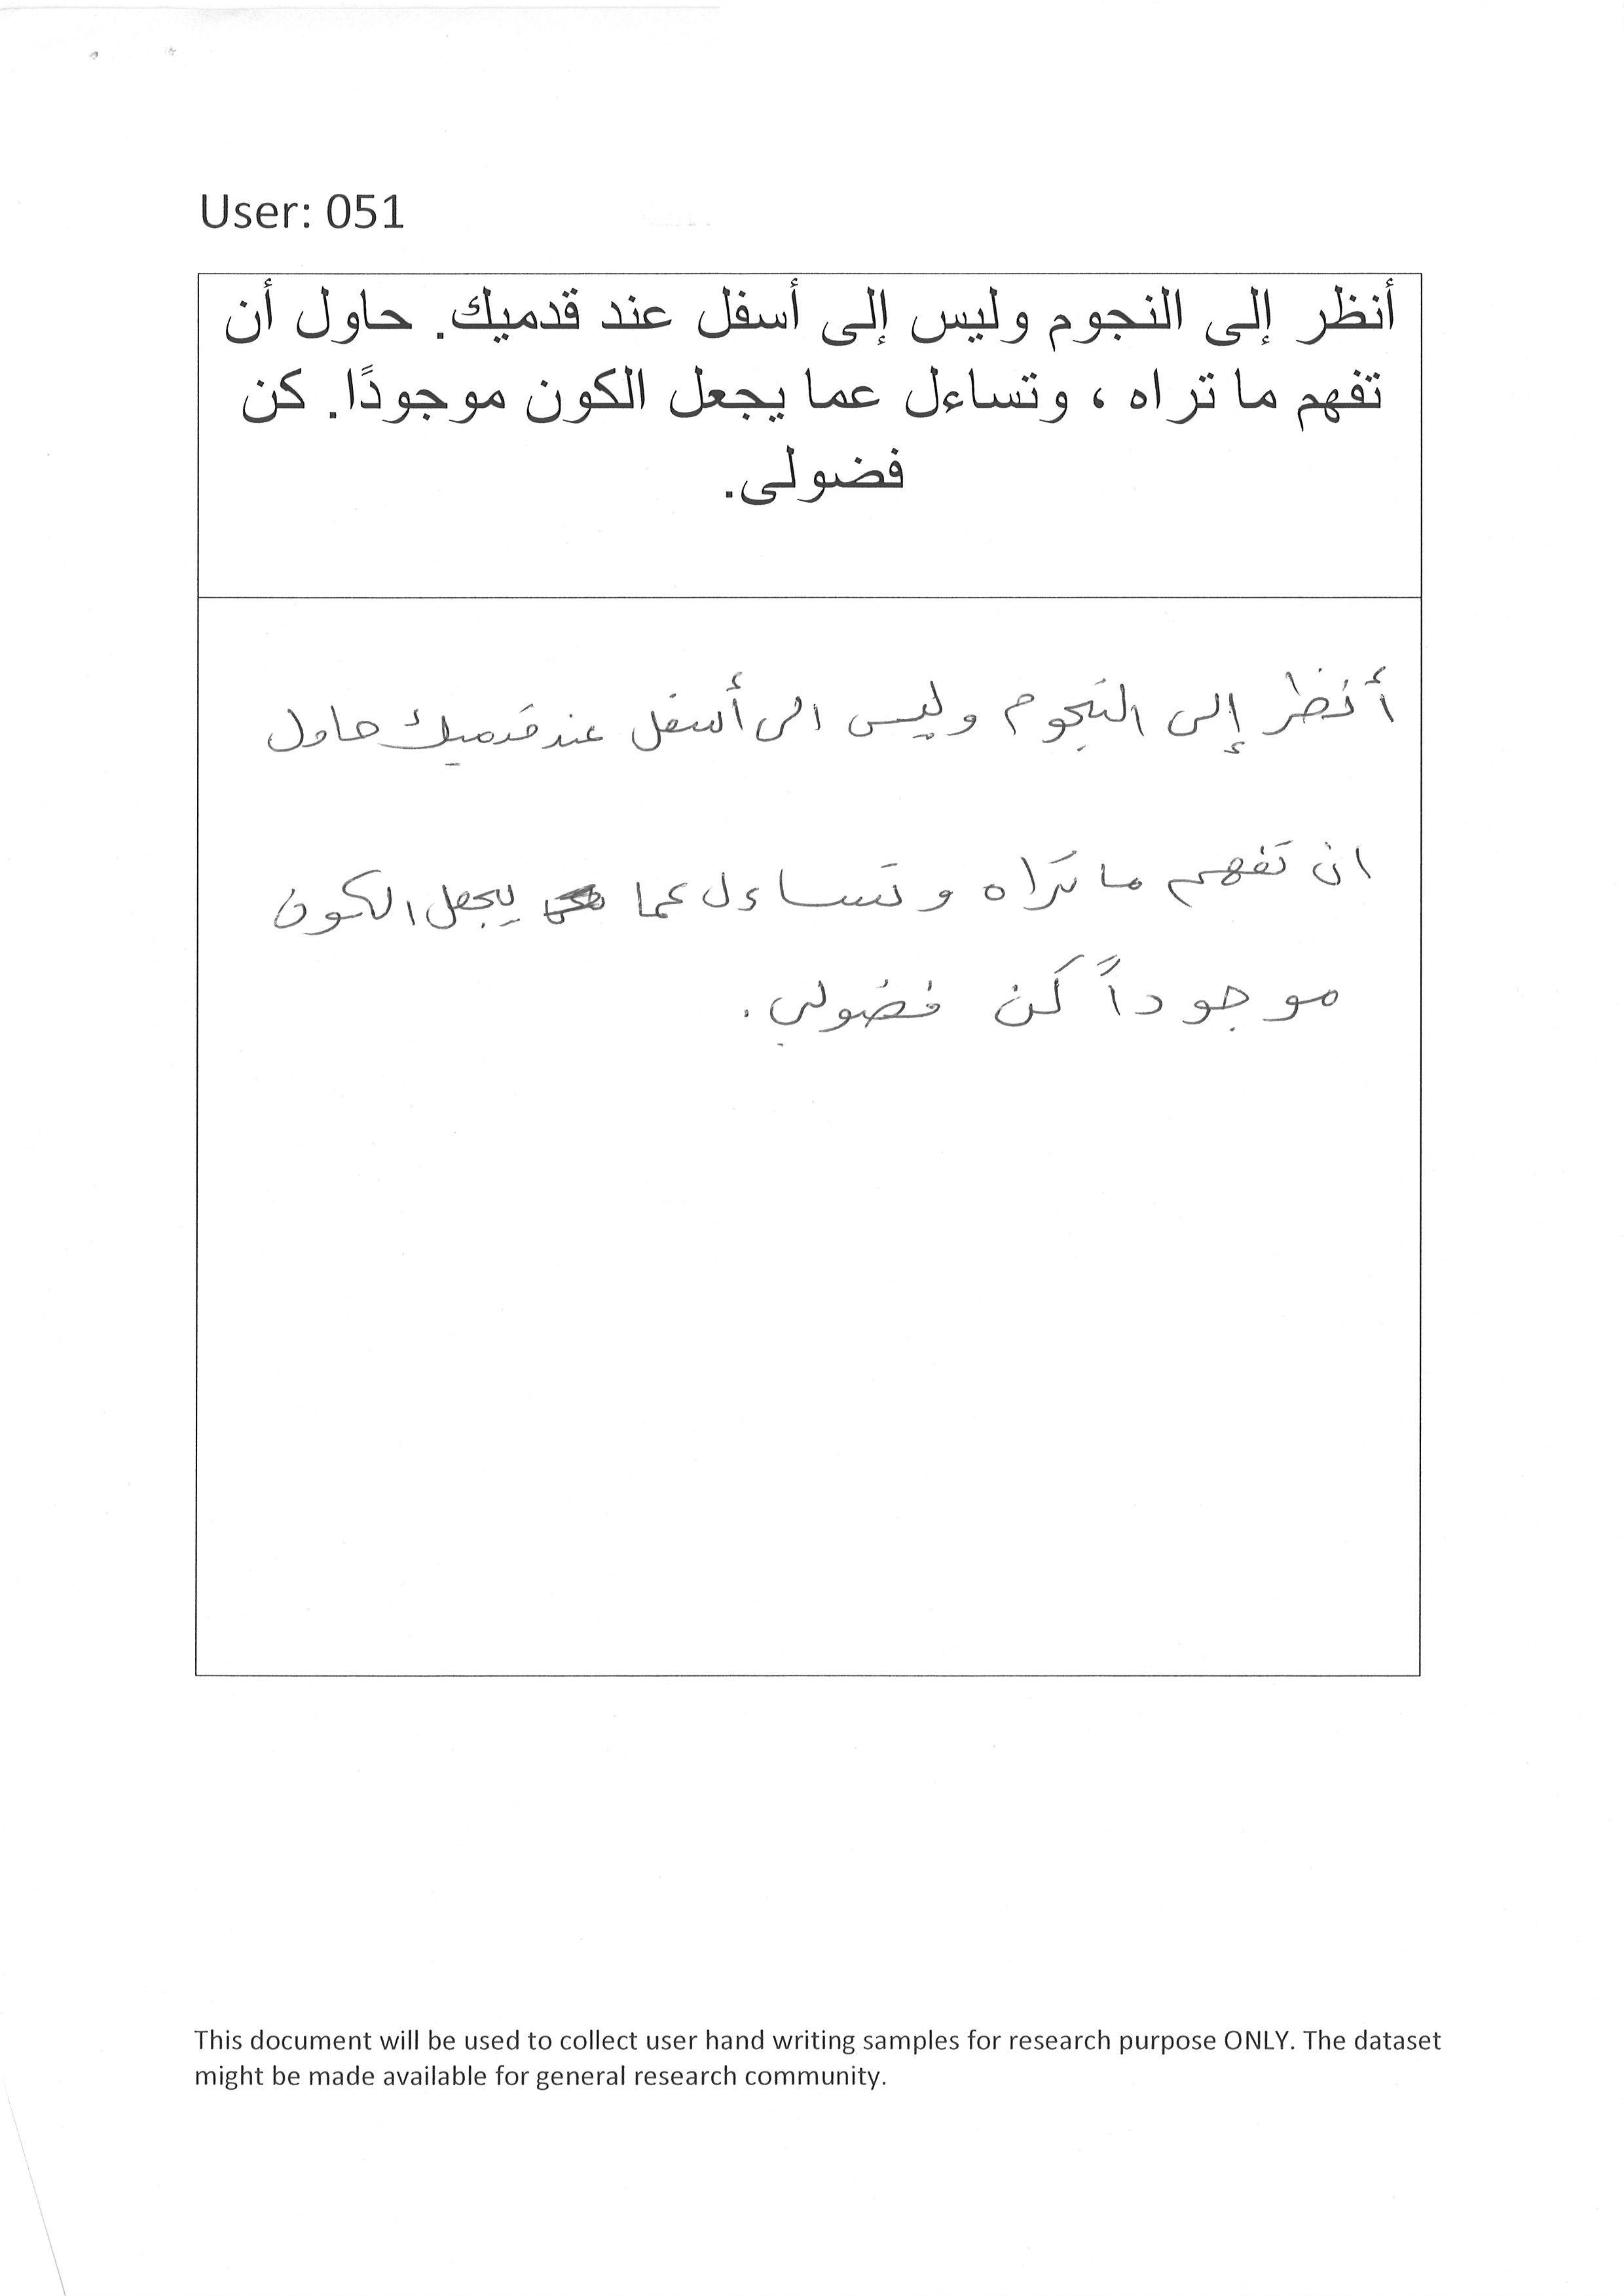 User: 051
أنظر إلى النجوم وليس إلى أسفل عند قدميك. حاول أن
تفهم ما تراه ، وتساءل عما يجعل الكون موجودًا. كن
فضولى.
أنظر إلى النجوم وليس الى أسفل عند قدميك حاول
ان تفهم ما تراه وتساءل عما يجعل الكون
موجوداً كن فضولي.
This document will be used to collect user hand writing samples for research purpose ONLY. The dataset
might be made available for general research community.